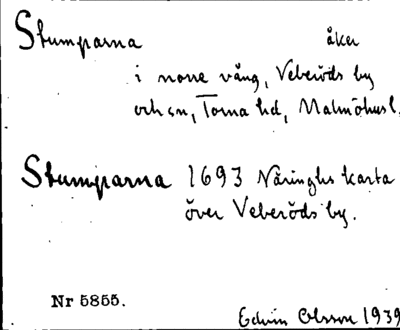 Stumparna åker
i norre vång, Veberöds by
och sn, Torna hd, Malmöhusl.
Stumparna 1693 Näringhs karta
över Veberöds by.
Nr 5855.
Edvin Olsson 1939